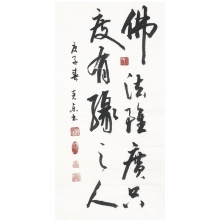 佛法雖廣只
度有緣之人
庚子春